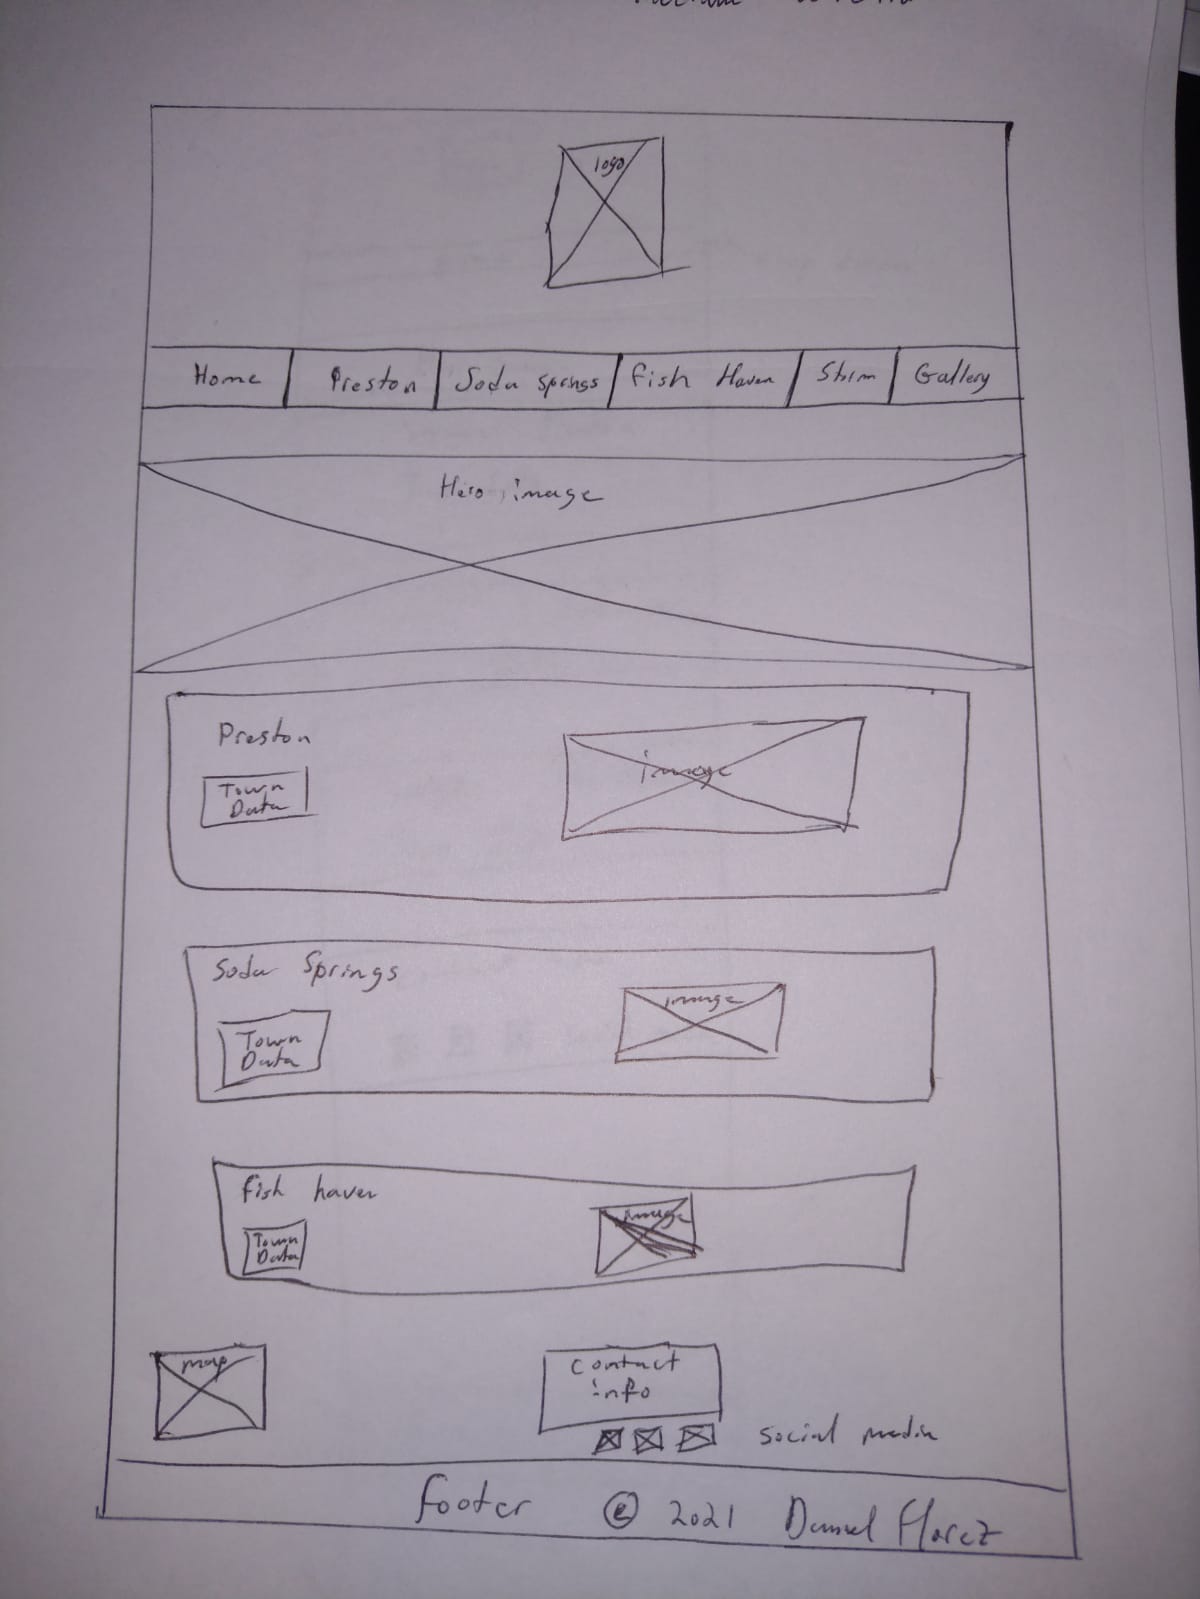 logo
Home
Preston
Soda Springs
Fish Haven
Storm
Gallery
Hero image
Preston
Town
Data
image
Soda Springs
Town
Data
image
fish haven
Town
Data
image
map
contact
info
social media
footer © 2021 Daniel Florez